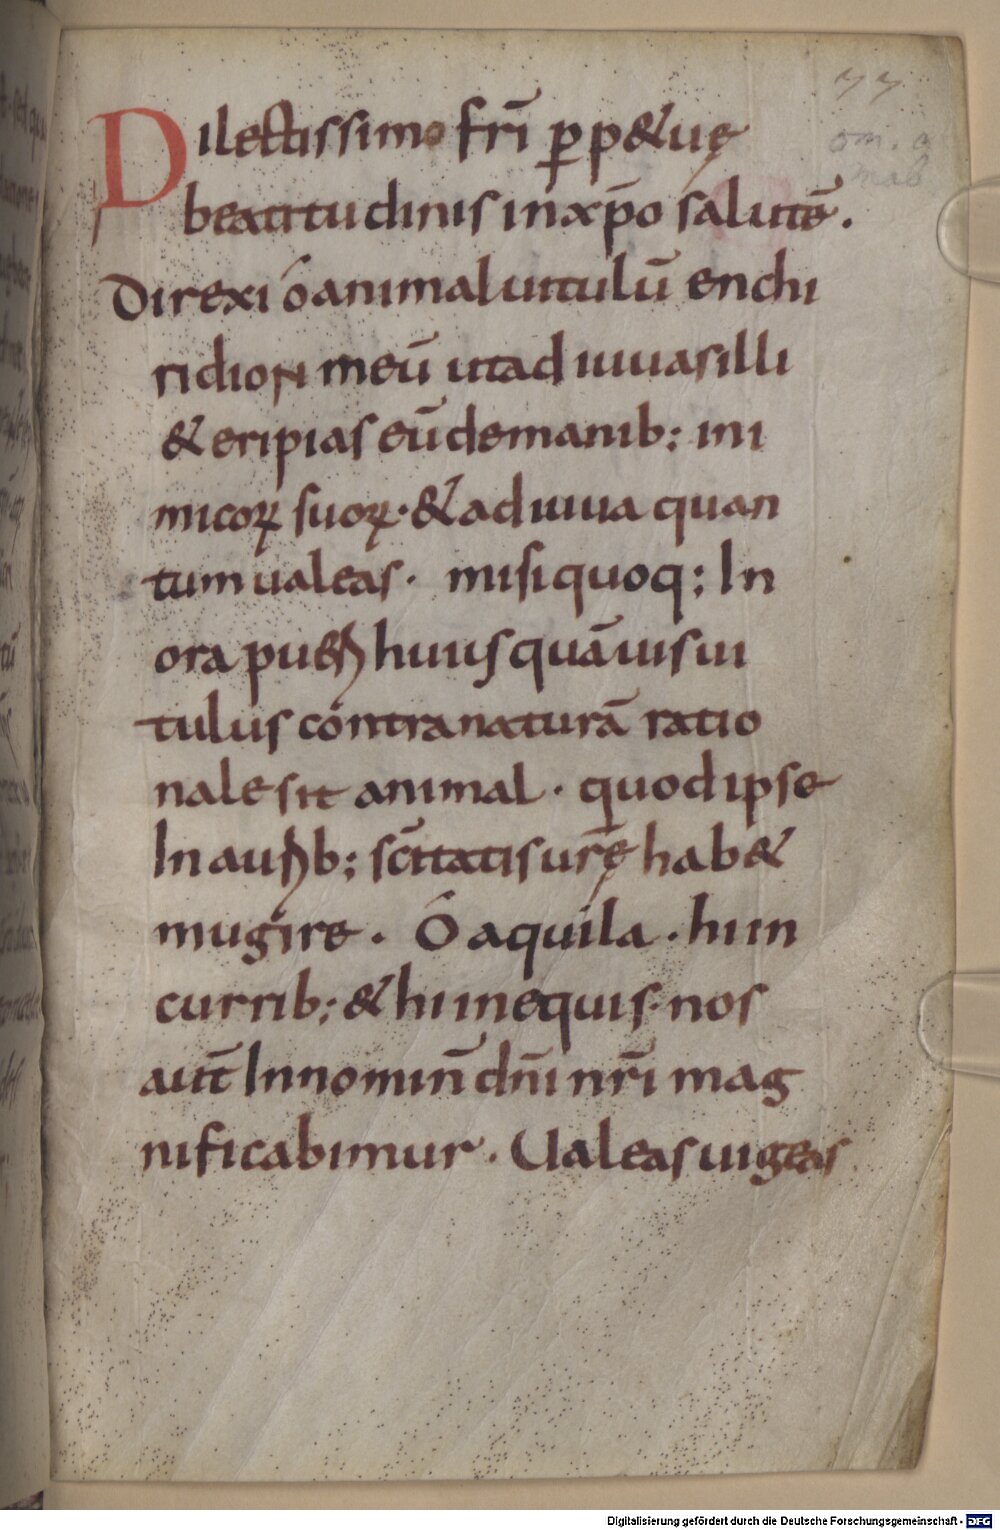 77
om. a
mab
Dilectissimo fr̄i ꝑp&uę
beatitudinis inxp̄o salutē.
Direxi ó animal uitulū enchi
ridion meū utad iuuasilli
& eripias eū demanib; ini
micoꝝ suoꝝ· & ad iuua quan
tum ualeas· misi quoq; In
ora pueri huius quāuis ui
tulus contra naturā ratio
nale sit animal· quod ipse
In aurib; sc̄itatis urę hab&
mugire. Ó aquila· hi in
currib; & hi in equis· nos
aut̄ In nomin̄ dn̄i nr̄i mag
nificabimur· Ualeas uigeas
Digitalisierung gefördert durch die Deutsche Forschungsgemeinschaft - DFG